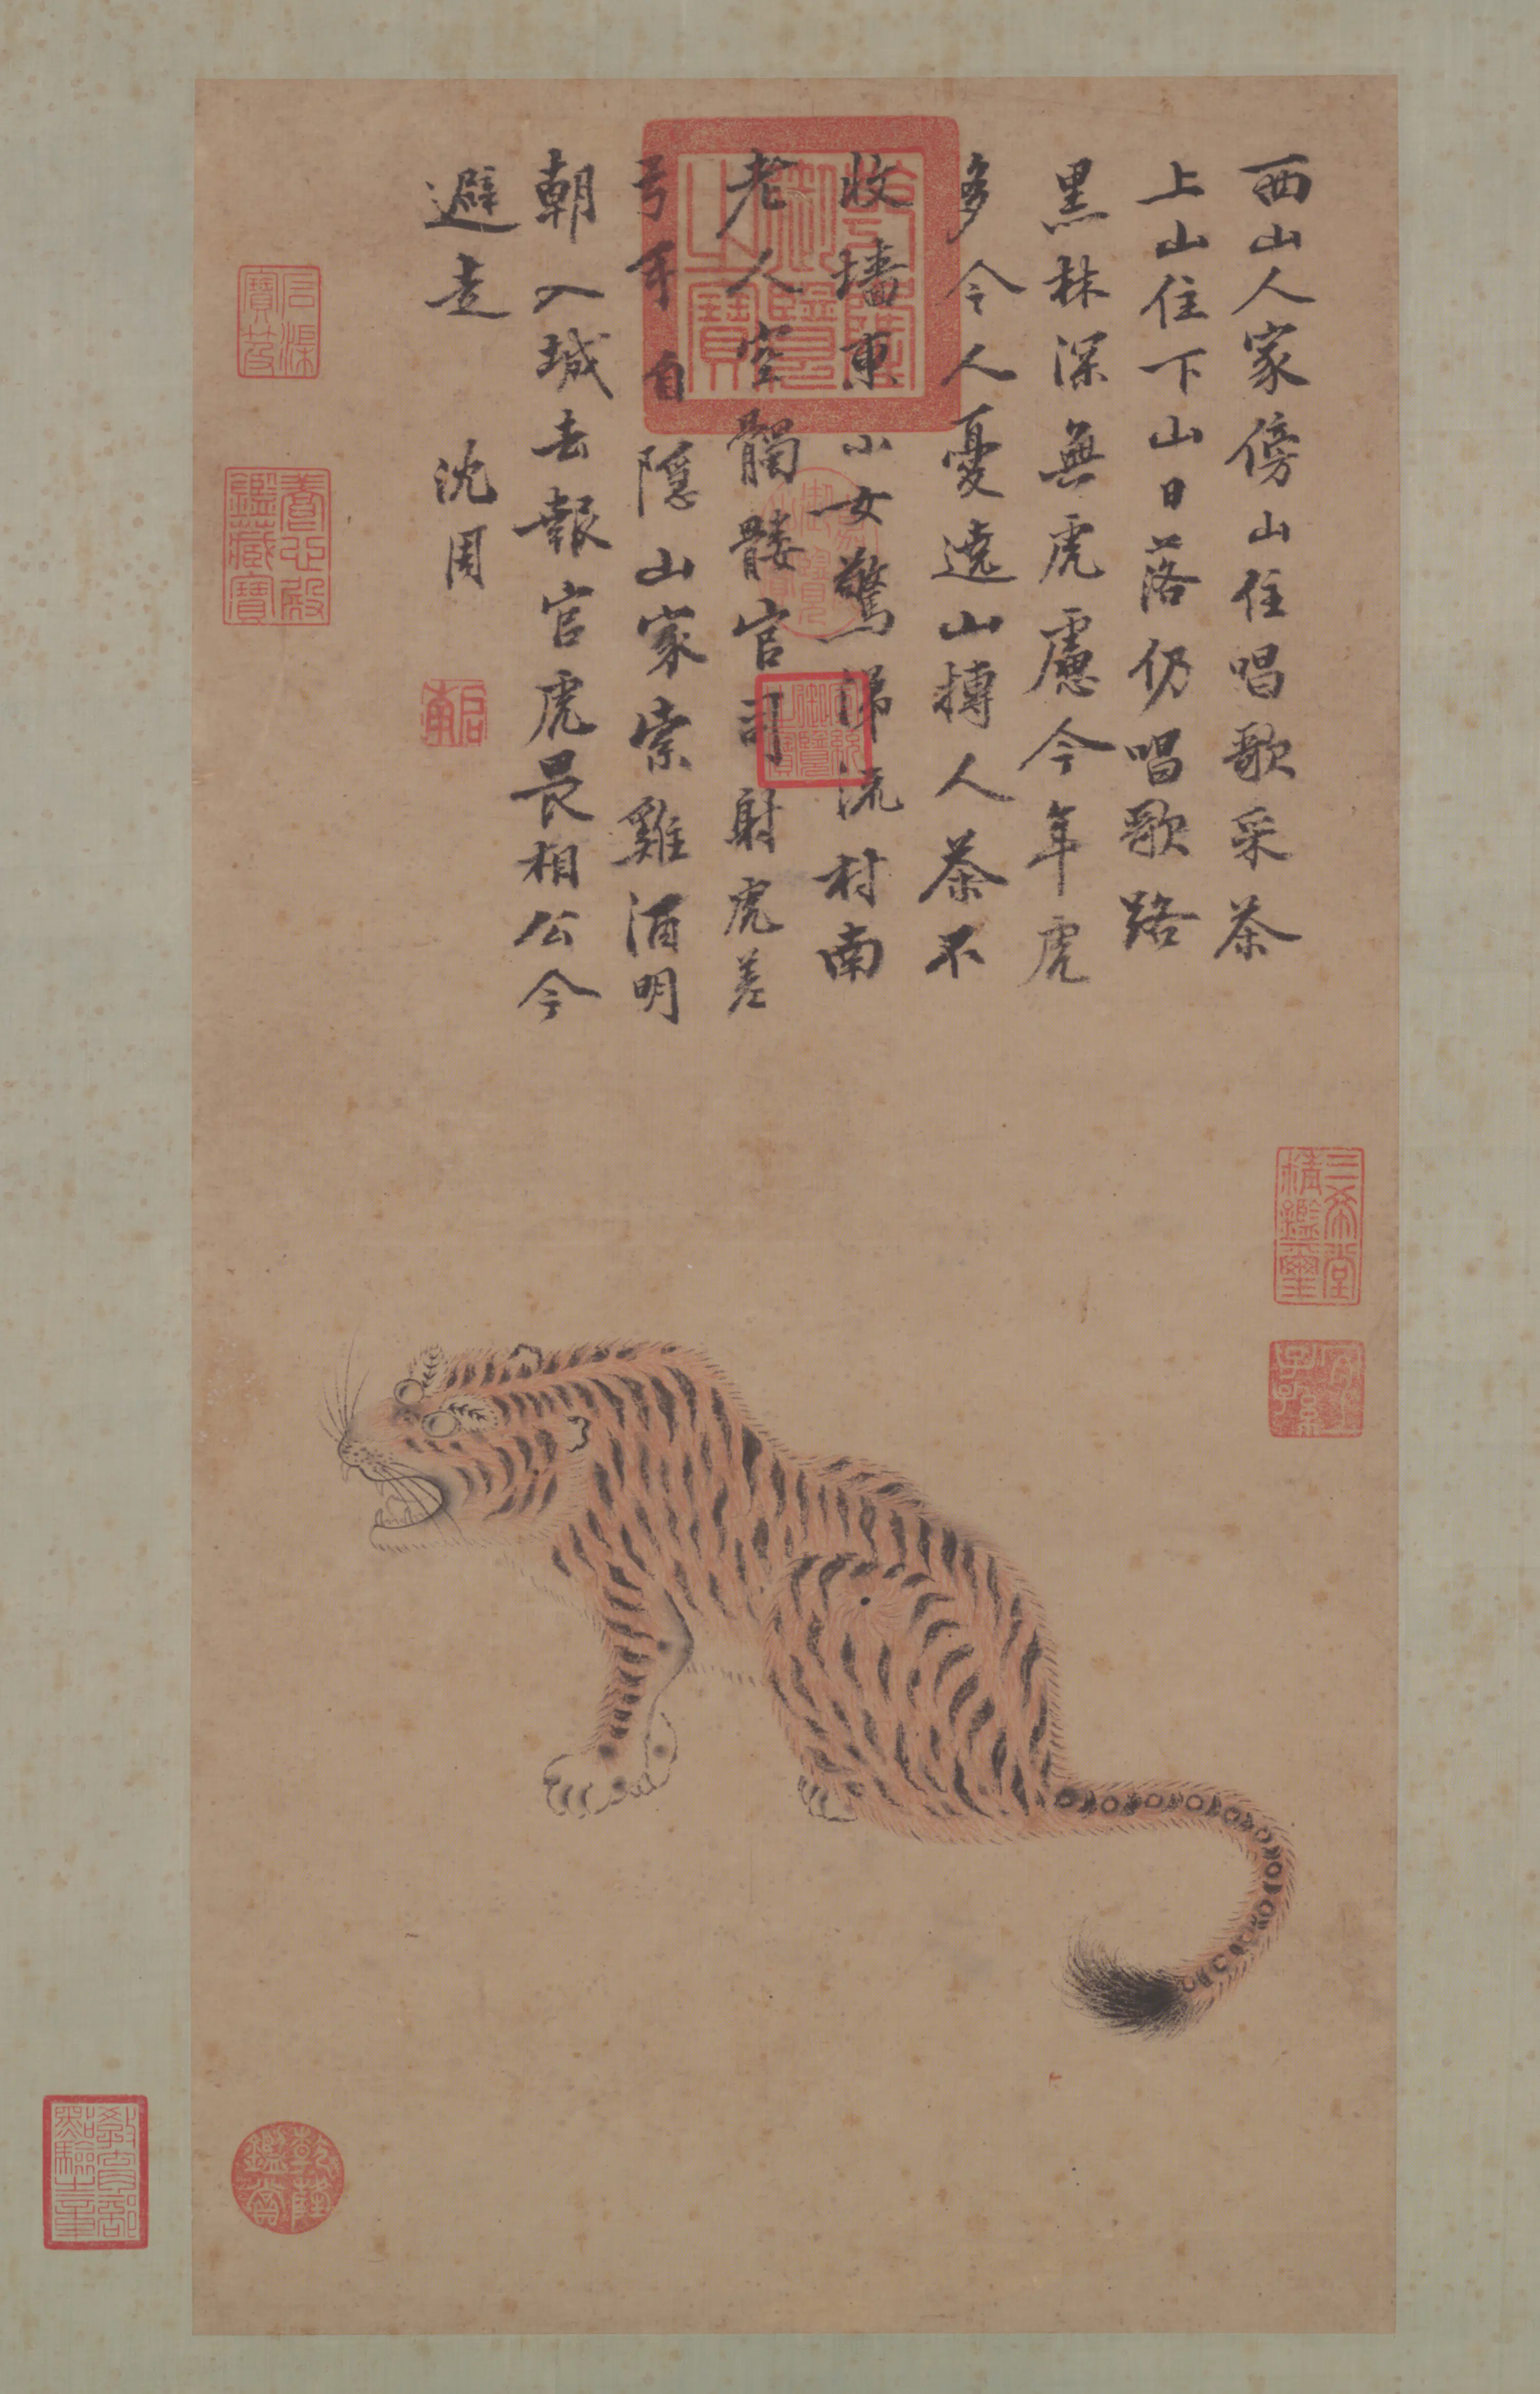 西山人家傍山住唱歌采茶
上山住下山日落仍唱歌路
黑林深無虎慮今年虎
多令人憂遶山搏人茶不
收墻東小女驚涕流村南
老人空髑髏官司射虎差
弓手自隱山家索雞酒明
朝入城去報官虎畏相公今
避走 沈周
啟南
乾隆御覽之寶
嘉慶御覽之寶
宣統御覽之寶
石渠寶笈
養心殿鑑藏寶
三希堂精鑑璽
宜子孫
乾隆鑑賞
教育部點驗之章